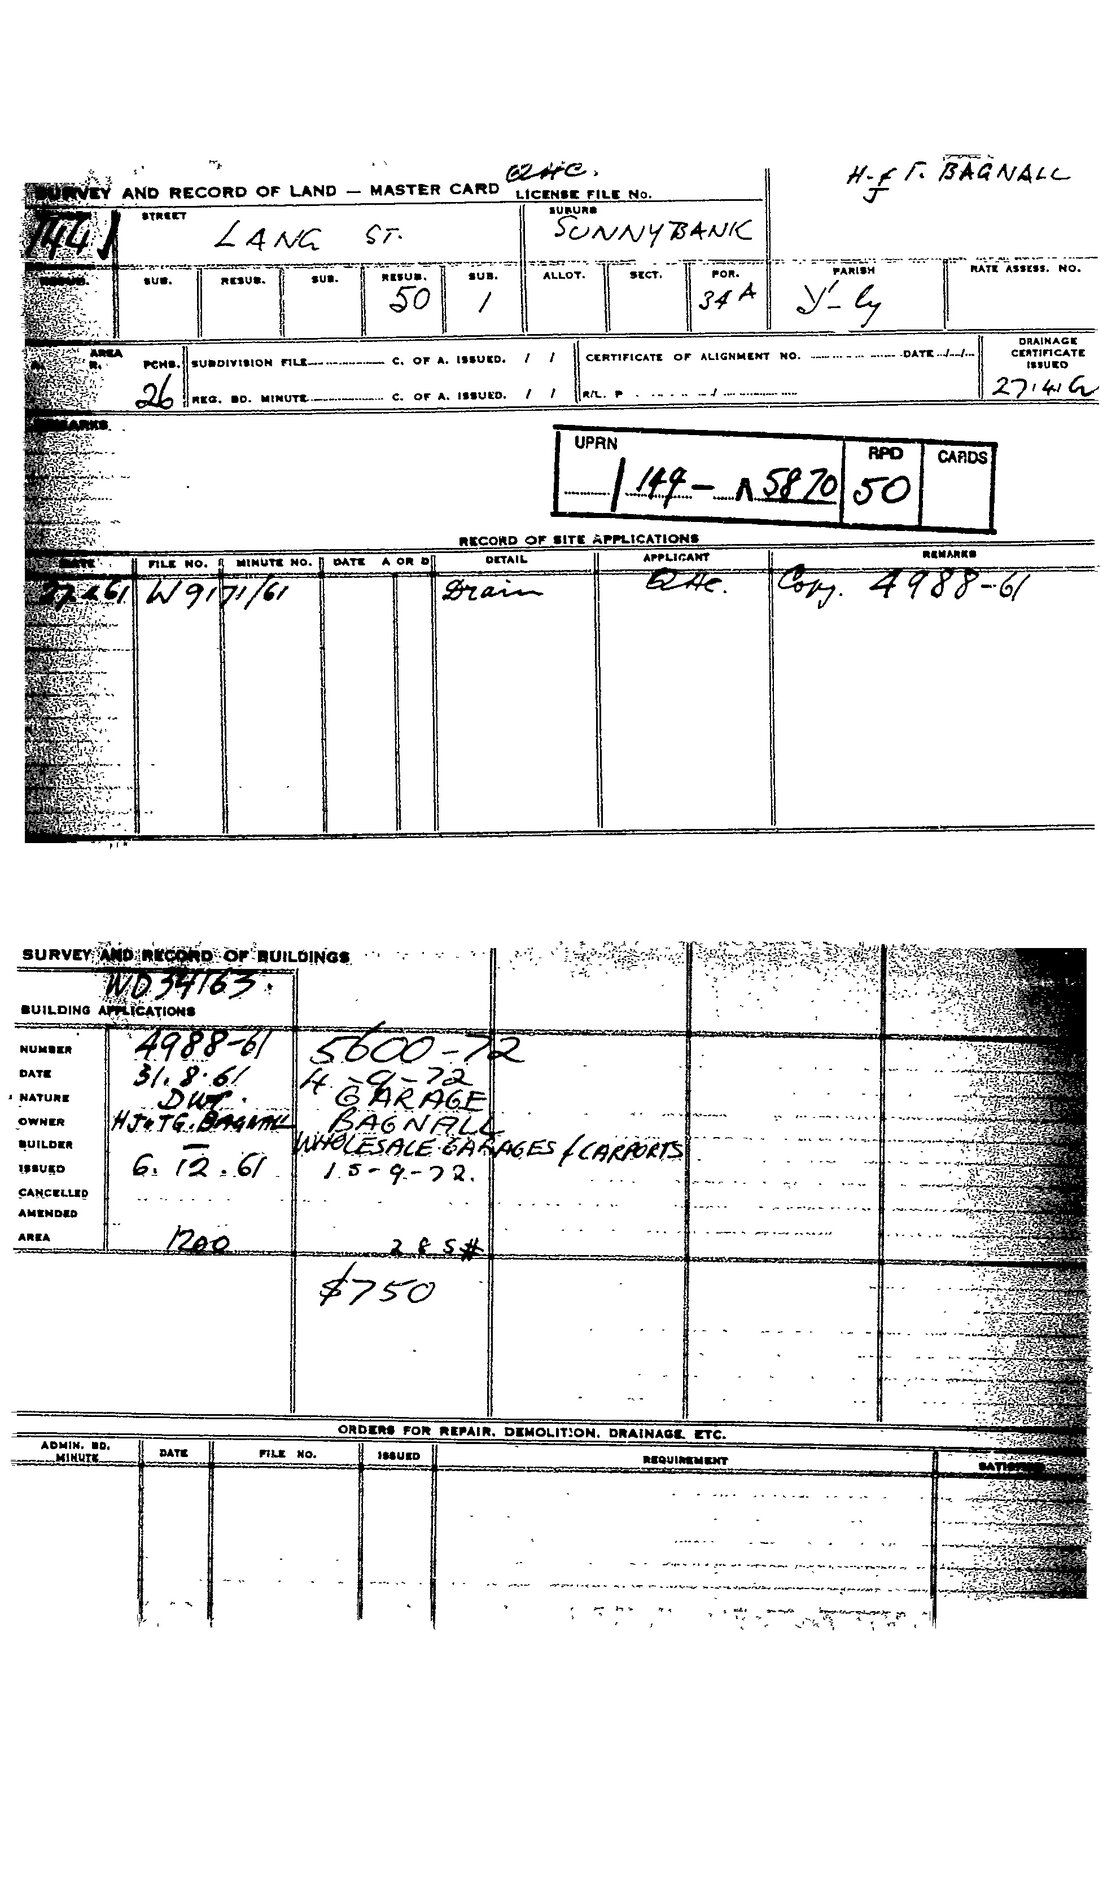 QHC.
H. & T. BAGNALL
J
SURVEY AND RECORD OF LAND — MASTER CARD LICENSE FILE No.
STREET SUBURB
LANG ST. SUNNYBANK
RESUB. SUB. RESUB. SUB. RESUB. SUB. ALLOT. SECT. POR. PARISH RATE ASSESS. NO.
50 1 34A Y'-ly
AREA
A. R. PCHS. SUBDIVISION FILE C. OF A. ISSUED. / / CERTIFICATE OF ALIGNMENT NO. DATE / / DRAINAGE CERTIFICATE ISSUED
26 REG. BD. MINUTE C. OF A. ISSUED. / / R/L. P / 27.4.
REMARKS
UPRN RPD CARDS
/ 149 - 5870 50
RECORD OF SITE APPLICATIONS
DATE FILE NO. MINUTE NO. DATE A OR D DETAIL APPLICANT REMARKS
W9171/61 Drain QHC. Copy. 4988-61
SURVEY AND RECORD OF BUILDINGS
WD34163.
BUILDING APPLICATIONS
NUMBER 4988-61 5600-72
DATE 31.8.61 4-9-72
NATURE Dwg. GARAGE
OWNER HJ & TG. BAGNALL BAGNALL
BUILDER — WHOLESALE GARAGES / CARPORTS
ISSUED 6.12.61 15-9-72.
CANCELLED
AMENDED
AREA 1200 285#
$750
ORDERS FOR REPAIR, DEMOLITION, DRAINAGE, ETC.
ADMIN. BD. MINUTE DATE FILE NO. ISSUED REQUIREMENT